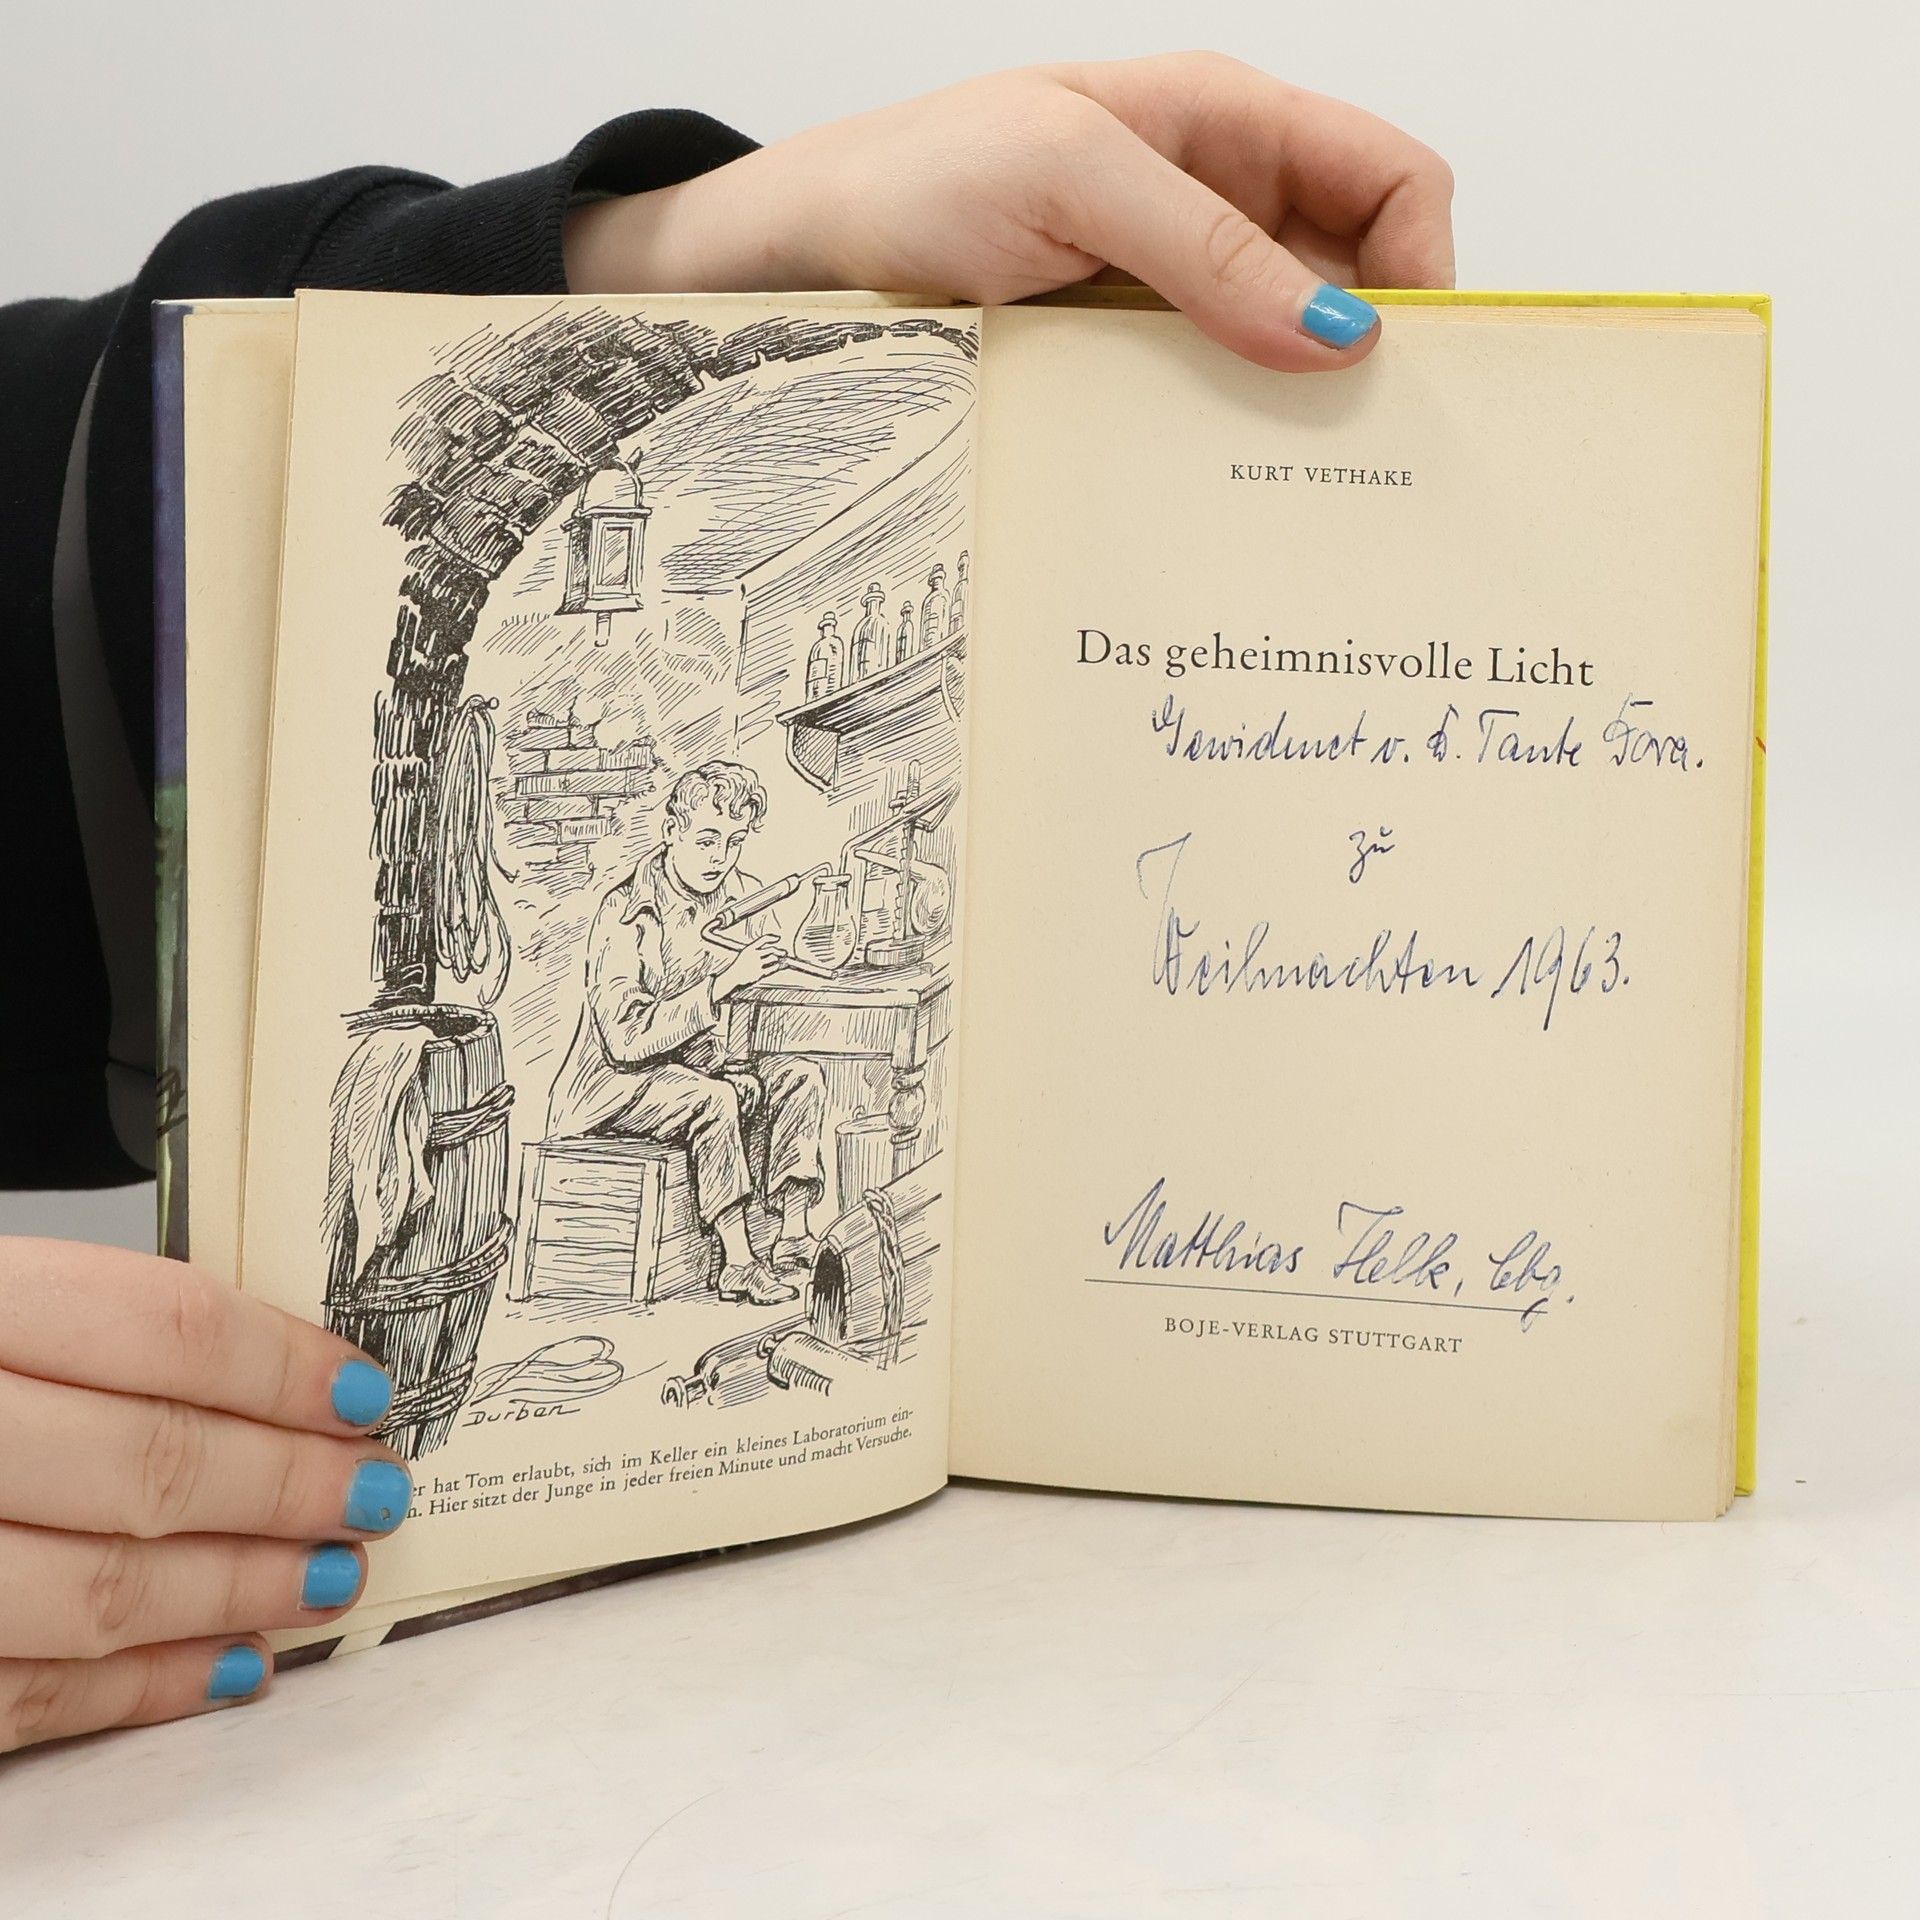 Durban
er hat Tom erlaubt, sich im Keller ein kleines Laboratorium ein-
n. Hier sitzt der Junge in jeder freien Minute und macht Versuche.
KURT VETHAKE
Das geheimnisvolle Licht
Gewidmet v. d. Tante
zu
Weihnachten 1963.
Matthias Helk, Cbg.
BOJE-VERLAG STUTTGART